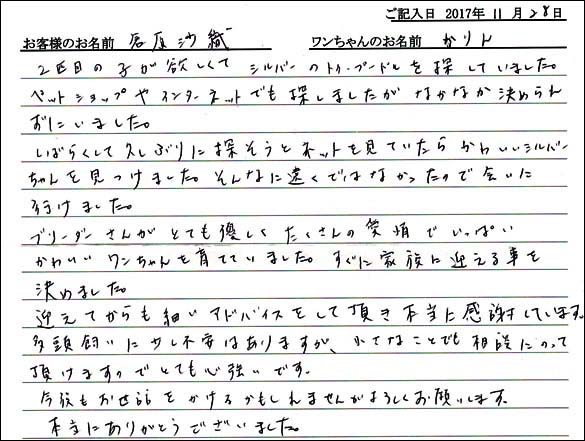 ご記入日 2017年 11月28日
お客様のお名前 宮原沙織 ワンちゃんのお名前 かりん
2匹目の子が欲しくて シルバーのトイ・プードルを探していました。
ペットショップやインターネットでも探しましたが なかなか決められ
ずにいました。
しばらくして久しぶりに探そうとネットを見ていたら かわいいシルバー
ちゃんを見つけました。そんなに遠くではなかったので会いに
行けました。
ブリーダーさんがとても優しく たくさんの愛情でいっぱい
かわいいワンちゃんを育てていました。すぐに家族に迎える事を
決めました。
迎えてからも細いアドバイスをして頂き本当に感謝しています。
多頭飼いに少し不安はありますが、小さなことでも相談にのって
頂けますのでとても心強いです。
今後もお世話をかけるかもしれませんがよろしくお願いします。
本当にありがとうございました。